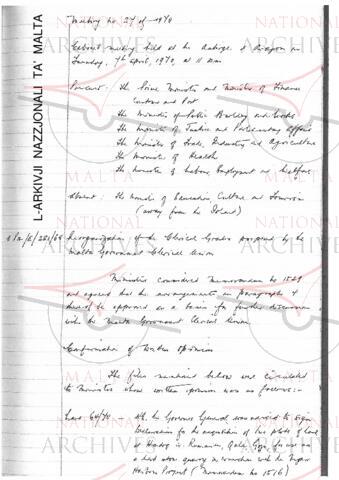 Meeting no. 27 of 1970
Cabinet meeting held at the Auberge d'Aragon on
Tuesday, 7th April, 1970, at 11 am
Present: the Prime Minister and Minister of Finance
Customs and Port
the Minister of Public Building and Works
the Minister of Justice and Parliamentary Affairs
the Minister of Trade, Industry and Agriculture
the Minister of Health
the Minister of Labour, Employment and Welfare
Absent: the Minister of Education, Culture and Tourism
(away from the Island)
Reorganization of the Clerical Grades proposed by the
Malta Government Clerical Union
Ministers considered Memorandum No 1549
and agreed that the arrangements in paragraph 4
thereof be approved as a basis for further discussion
with the Malta Government Clerical Union
Confirmation of Written Opinions
The files mentioned below were circulated
to Ministers whose written opinion was as follows:-
Land 64/70 - the Governor General was advised to sign
declarations for the acquisition of two plots of land
at Qala, Gozo, for use as
a hard stone quarry in connection with the
Harbour Project (Memorandum No 1516)
L-ARKIVJI NAZZJONALI TA' MALTA
NATIONAL
ARCHIVES